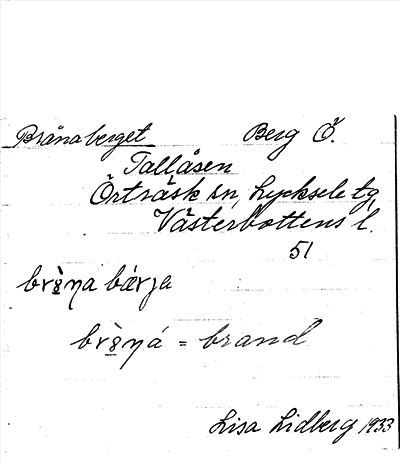 Brånaberget Berg Ö.
Tallåsen
Örträsk sn, Lycksele tg,
Västerbottens l.
51
brò̤na bárja
brò̤ná = brand
Lisa Lidberg 1933